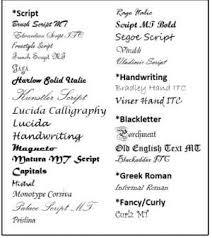 *Script
Brush Script MT
Edwardian Script ITC
Freestyle Script
French Script MT
Gigi
Harlow Solid Italic
Kunstler Script
Lucida Calligraphy
Lucida
Handwriting
Magneto
Matura MT Script
Capitals
Mistral
Monotype Corsiva
Palace Script MT
Pristina
Rage Italic
Script MT Bold
Segoe Script
Vivaldi
Vladimir Script
*Handwriting
Bradley Hand ITC
Viner Hand ITC
*Blackletter
Parchment
Old English Text MT
Blackadder ITC
*Greek Roman
Informal Roman
*Fancy/Curly
Curlz MT